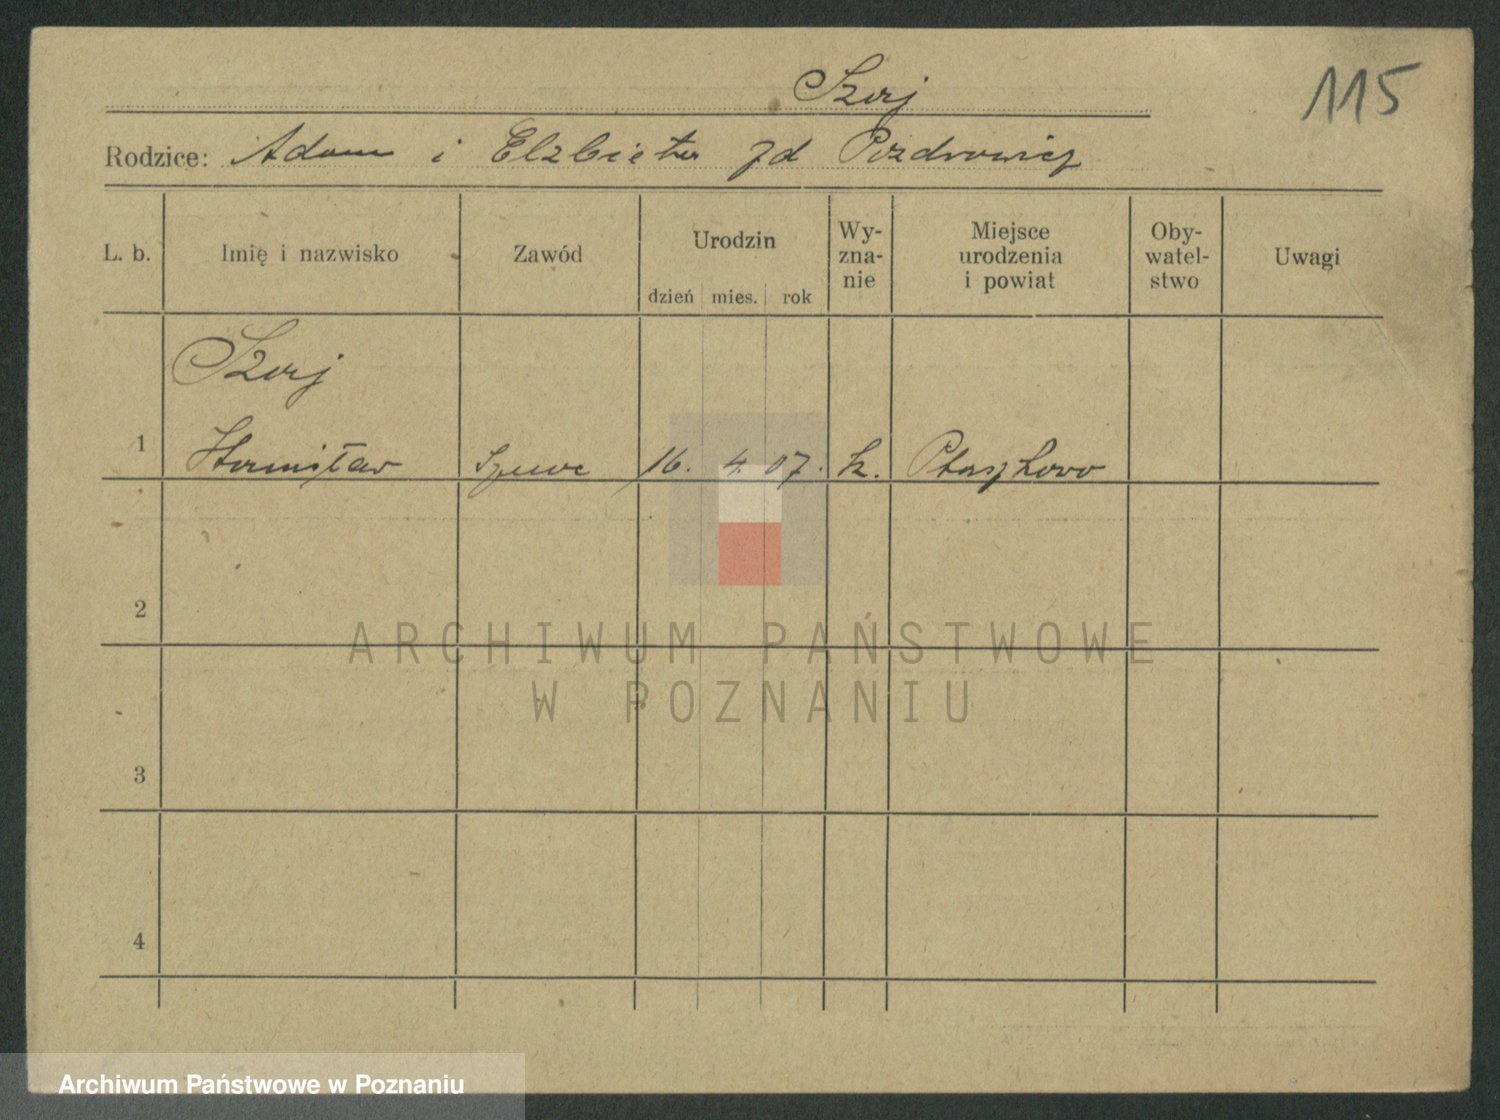 Szorj
115
Rodzice: Adam i Elzbieta zd Pozdrowicz
L. b.
Imię i nazwisko
Zawód
Urodzin
dzień mies. rok
Wy-
zna-
nie
Miejsce
urodzenia
i powiat
Oby-
watel-
stwo
Uwagi
Szorj
1 Stanisław szewc 16. 4. 07. k. Ptaszkowo
2
ARCHIWUM PAŃSTWOWE
W POZNANIU
3
4
Archiwum Państwowe w Poznaniu